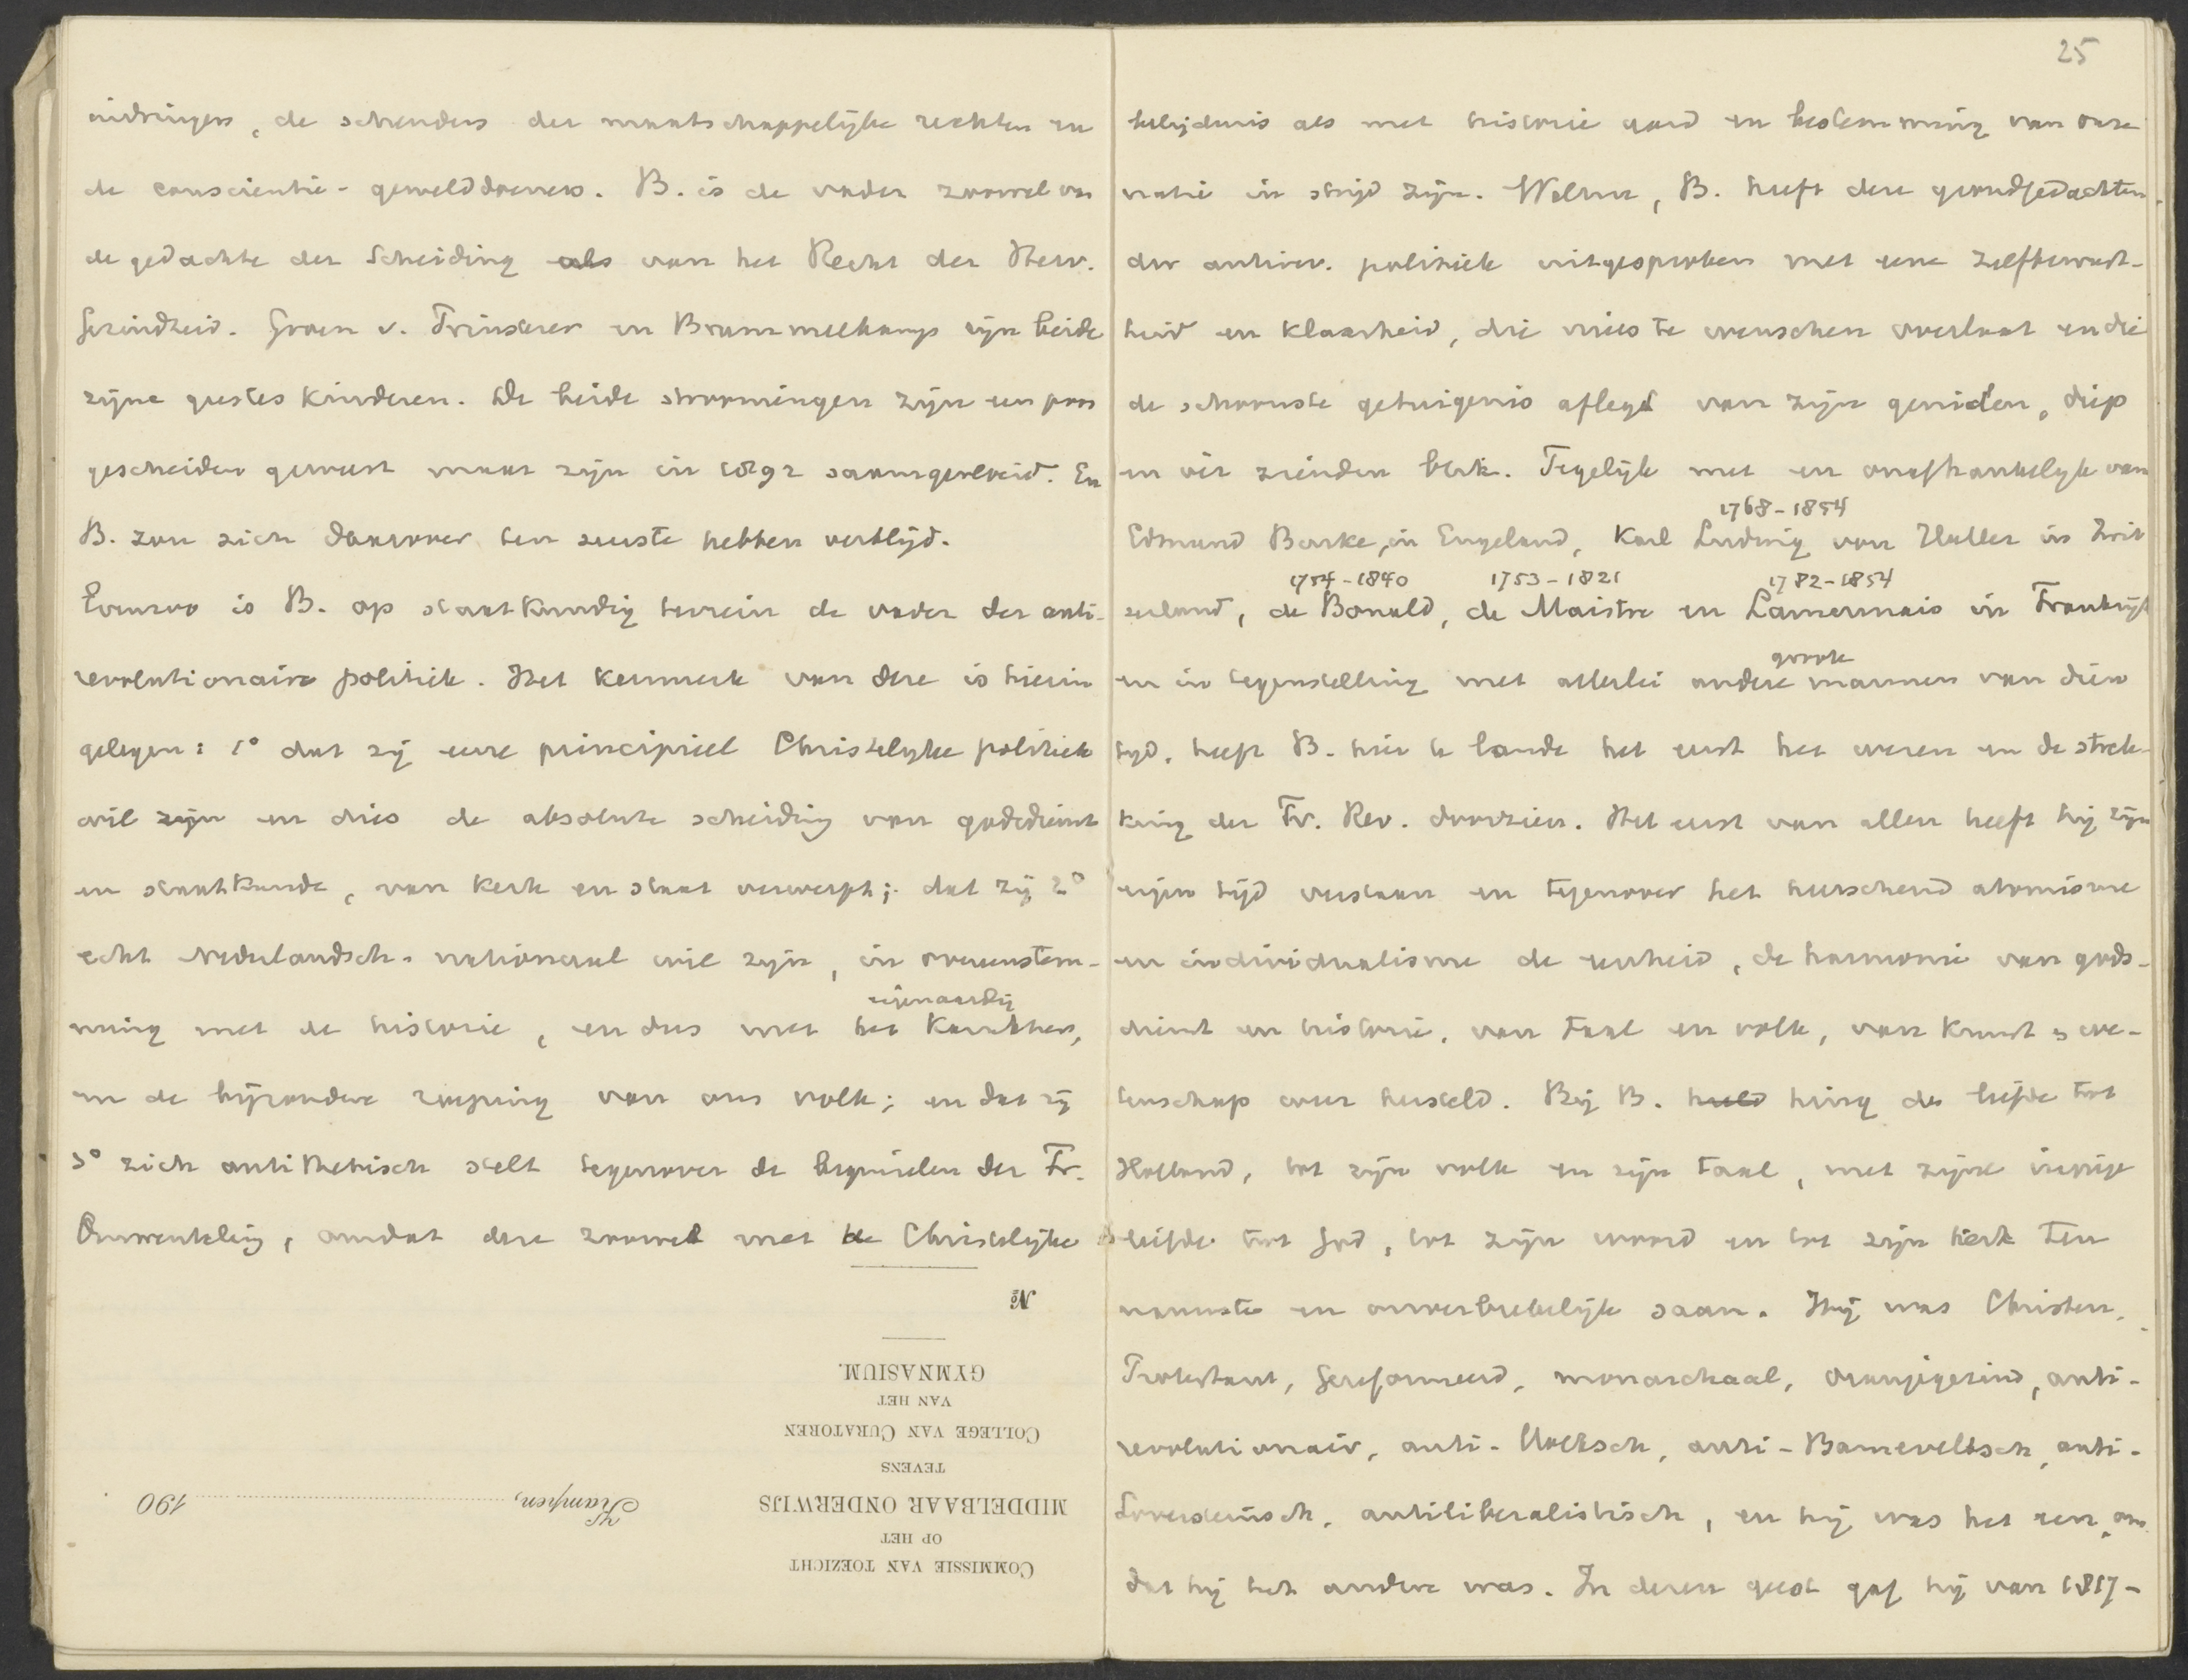 indringers, de schenders der maatschappelijke rechten en
de conscientie-gewelddoeners. B. is de vader zoowel van
de gedachte der Scheiding als van het Recht der Herv.
Gezindheid. Groen v. Prinsterer en Brummelkamp zijn beide
zijne geestes kinderen. De beide stroomingen zijn een poos
gescheiden geweest maar zijn in 1892 saamgevloeid. En
B. zou zich daarover ten zeerste hebben verblijd.
Evenzoo is B. op staatkundig terrein de vader der anti-
revolutionaire politiek. Het kenmerk van deze is hierin
gelegen: 1° dat zij eene principieel Christelijke politiek
wil zijn en dies de absolute scheiding van godsdienst
en staatkunde, van kerk en staat verwerpt; dat zij 2°
echt Nederlandsch-nationaal wil zijn, in overeenstem-
eigenaardig
ming met de historie, en dus met het karakter,
en de bijzondere roeping van ons volk; en dat zij
3° zich antithetisch stelt tegenover de beginselen der Fr.
Omwenteling, omdat deze zoowel met de Christelijke
No
GYMNASIUM.
VAN HET
COLLEGE VAN CURATOREN
TEVENS
MIDDELBAAR ONDERWIJS
Kampen, 190
OP HET
COMMISSIE VAN TOEZICHT
25
belijdenis als met historie aard en bestemming van onze
natie in strijd zijn. Welnu, B. heeft deze grondgedachten
der antirev. politiek uitgesproken met eene zelfbewust-
heid en klaarheid, die niets te wenschen overlaat en die
de schoonste getuigenis aflegt van zijn genialen, diep
en ver zienden blik. Tegelijk met en onafhankelijk van
1768-1854
Edmund Burke, in Engeland, Karl Ludwig von Haller in Zwit
1754-1840 1753-1821 1782-1854
zerland, de Bonald, de Maistre en Lamennais in Frankrijk
groote
en in tegenstelling met allerlei andere mannen van dien
tijd, heeft B. hier te lande het eerst het wezen en de strek-
king der Fr. Rev. doorzien. Het eerst van allen heeft hij zijn
eigen tijd verstaan en tegenover het heerschend atomisme
en individualisme de eenheid, de harmonie van gods-
dienst en historie, van taal en volk, van kunst en we-
tenschap weer hersteld. Bij B. hield hing de liefde tot
Holland, tot zijn volk en zijn taal, met zijne innige
liefde tot God, tot zijn woord en tot zijn kerk ten
nauwste en onverbrekelijk saam. Hij was Christen,
Protestant, Gereformeerd, monarchaal, oranjegezind, anti-
revolutionair, anti-Loevesteinsch, anti-Barneveltsch, anti-
antiliberalistisch, en hij was het een, om
dat hij het andere was. In dezen geest gaf hij van 1817-